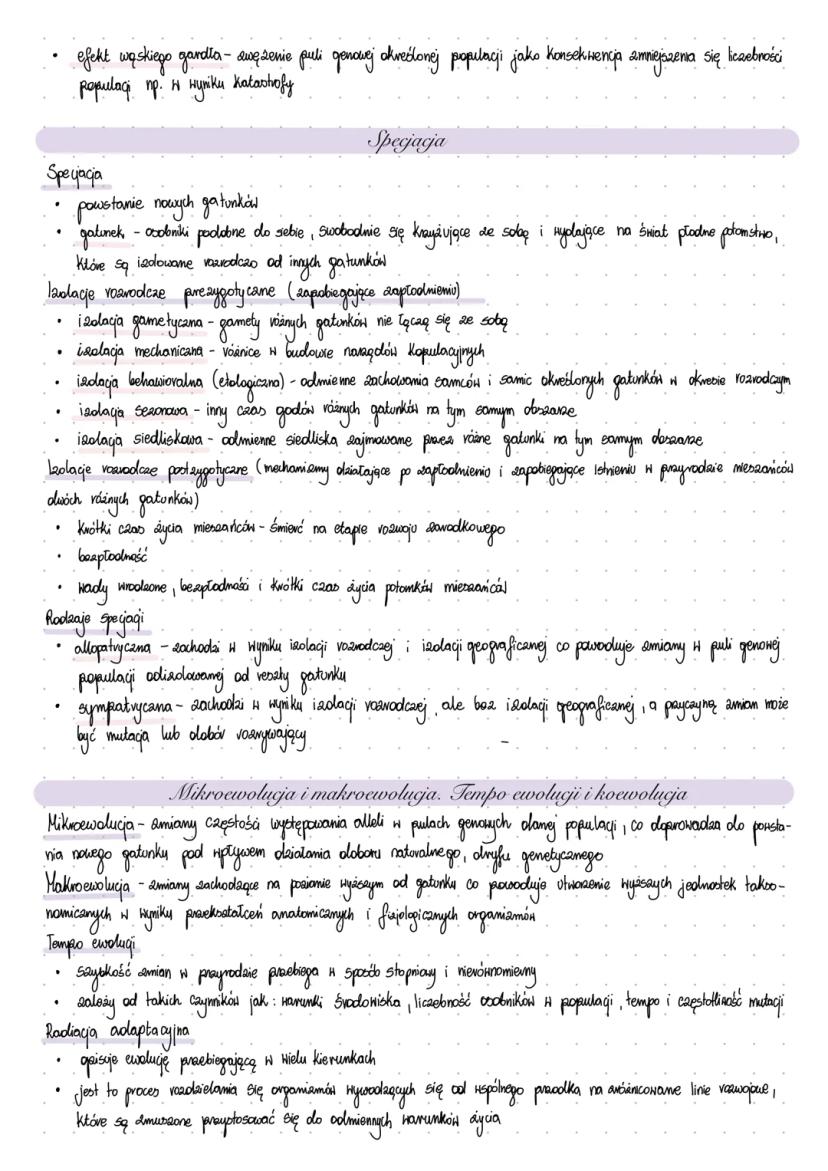 • efekt wąskiego gardła - zwężenie puli genowej określonej populacji jako konsekwencja zmniejszenia się liczebności
populacji np. w wyniku katastrofy
Specjacja
Specjacja
• powstanie nowych gatunków
• gatunek - osobniki podobne do siebie, swobodnie się krzyżujące ze sobą i wydające na świat płodne potomstwo,
które są izolowane rozrodczo od innych gatunków
Izolacje rozrodcze prezygotyczne (zapobiegające zapłodnieniu)
• izolacja gametyczna - gamety różnych gatunków nie łączą się ze sobą
• izolacja mechaniczna - różnice w budowie narządów kopulacyjnych
• izolacja behawioralna (etologiczna) - odmienne zachowania samców i samic określonych gatunków w okresie rozrodczym
• izolacja sezonowa - inny czas godów różnych gatunków na tym samym obszarze
• izolacja siedliskowa - odmienne siedliska zajmowane przez różne gatunki na tym samym obszarze
Izolacje rozrodcze postzygotyczne (mechanizmy działające po zapłodnieniu i zapobiegające istnieniu w przyrodzie mieszańców
dwóch różnych gatunków)
• krótki czas życia mieszańców - śmierć na etapie rozwoju zarodkowego
• bezpłodność
• wady wrodzone, bezpłodność i krótki czas życia potomków mieszańców
Rodzaje specjacji
• allopatryczna - zachodzi w wyniku izolacji rozrodczej i izolacji geograficznej co powoduje zmiany w puli genowej
populacji odizolowanej od reszty gatunku
• sympatryczna - zachodzi w wyniku izolacji rozrodczej, ale bez izolacji geograficznej, a przyczyną zmian może
być mutacja lub dobór rozrywający
Mikroewolucja i makroewolucja. Tempo ewolucji i koewolucja
Mikroewolucja - zmiany częstości występowania alleli w pulach genowych danej populacji, co doprowadza do powsta-
nia nowego gatunku pod wpływem działania doboru naturalnego, dryfu genetycznego
Makroewolucja - zmiany zachodzące na poziomie wyższym od gatunku co powoduje utworzenie wyższych jednostek takso-
nomicznych w wyniku przekształceń anatomicznych i fizjologicznych organizmów
Tempo ewolucji
• szybkość zmian w przyrodzie przebiega w sposób stopniowy i nierównomierny
• zależy od takich czynników jak: warunki środowiska, liczebność osobników w populacji, tempo i częstotliwość mutacji
Radiacja adaptacyjna
• opisuje ewolucję przebiegającą w wielu kierunkach
• jest to proces rozdzielania się organizmów wywodzących się od wspólnego przodka na zróżnicowane linie rozwojowe,
które są zmuszone przystosować się do odmiennych warunków życia